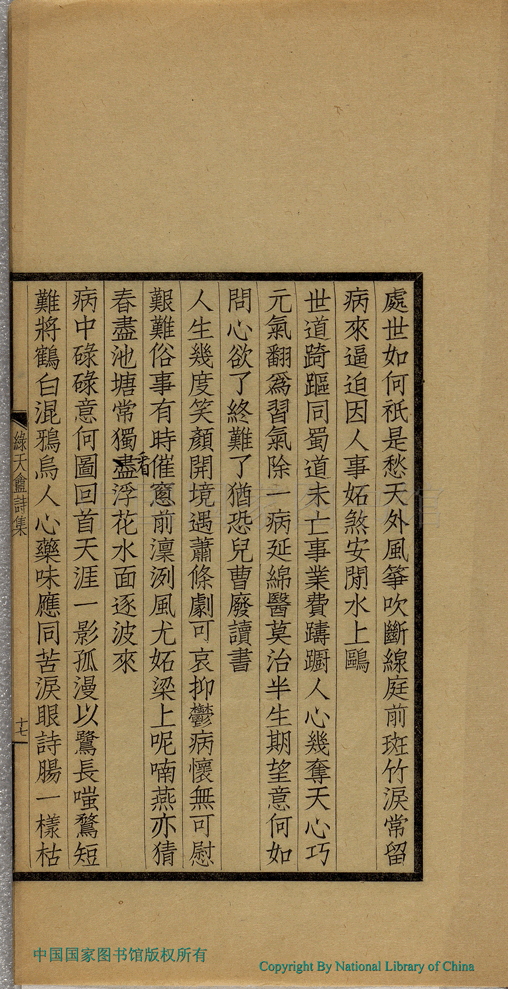 處世如何祇是愁天外風箏吹斷線庭前斑竹淚常留
病來逼迫因人事妬煞安閒水上鷗
世道踦躽同蜀道未亡事業費躊躕人心幾奪天心巧
元氣翻為習氣除一病延綿醫莫治半生期望意何如
問心欲了終難了猶恐兒曹廢讀書
人生幾度笑顏開境遇蕭條劇可哀抑鬱病懷無可慰
艱難俗事有時催窻前凜冽風尤妬梁上呢喃燕亦猜
春盡池塘常獨盡浮花水面逐波來
看
病中碌碌意何圖回首天涯一影孤漫以鷺長嗤鶩短
難將鶴白混鴉烏人心藥味應同苦淚眼詩腸一樣枯
綠天盦詩集
十七
中国国家图书馆版权所有
Copyright By National Library of China